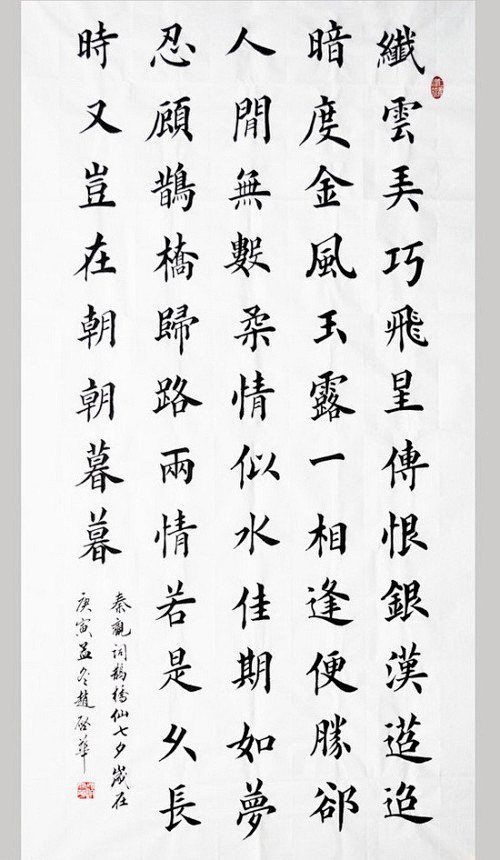 纖雲弄巧飛星傳恨銀漢迢迢
暗度金風玉露一相逢便勝卻
人閒無數柔情似水佳期如夢
忍顧鵲橋歸路兩情若是久長
時又豈在朝朝暮暮
秦觀詞鵲橋仙七夕歲在
庚寅孟冬趙啟華